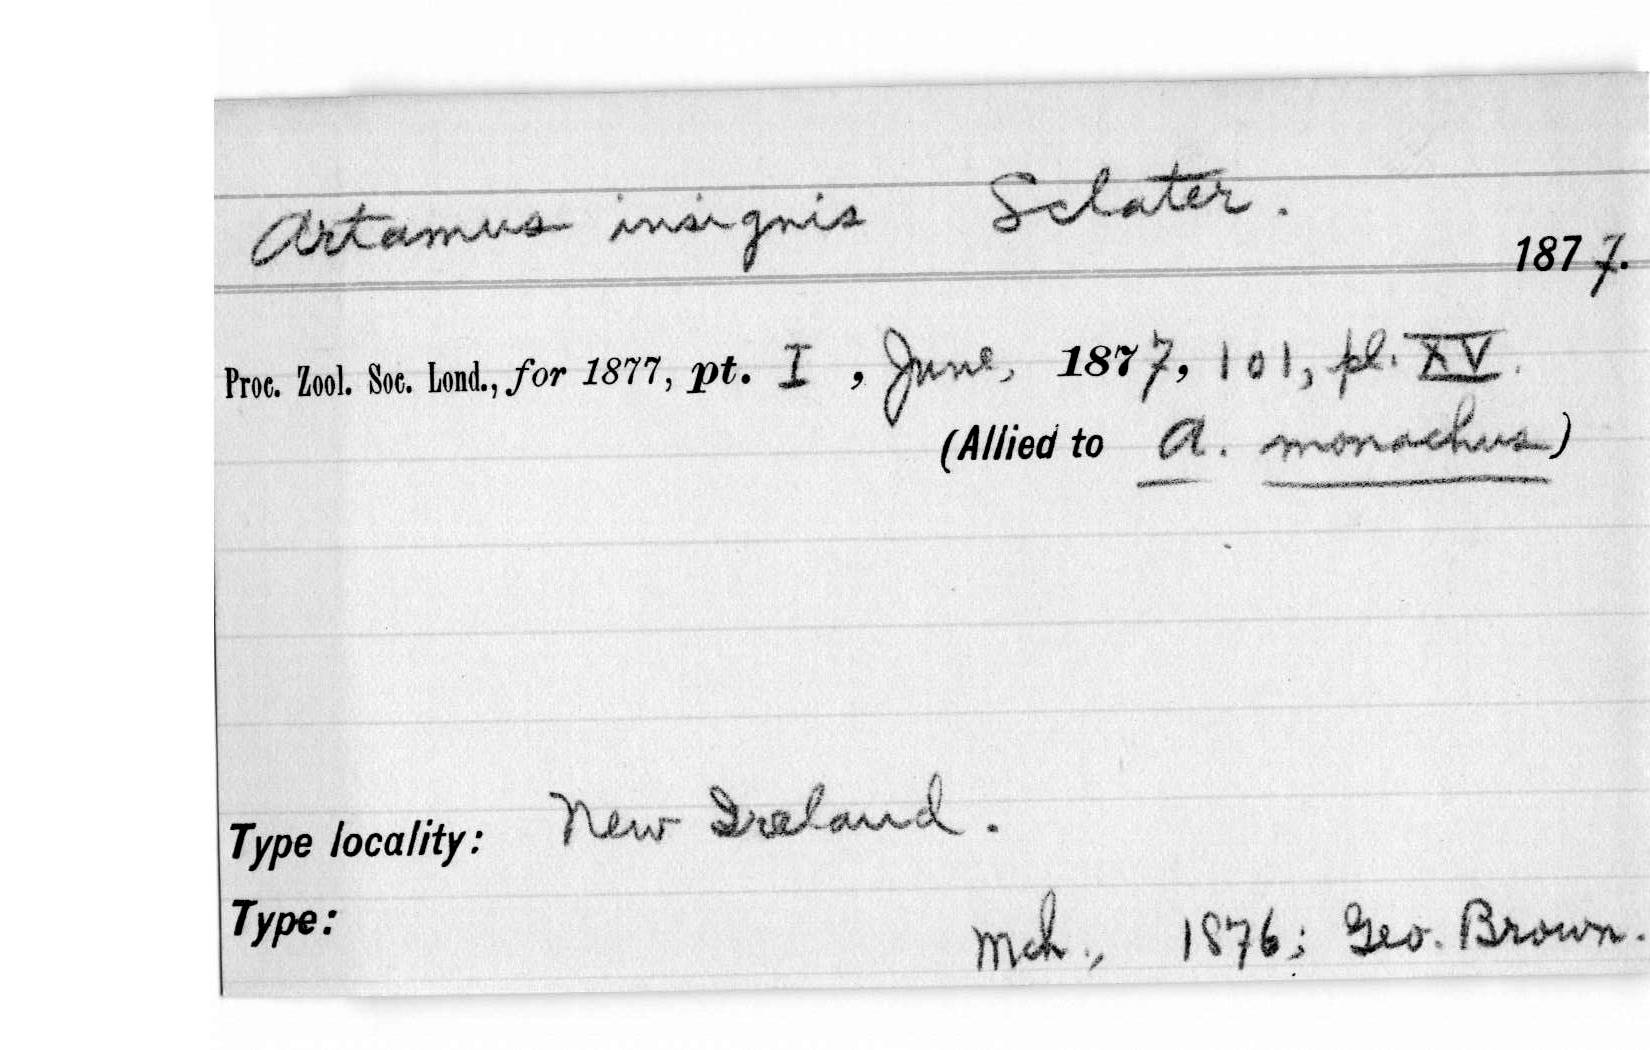 Artamus insignis Sclater.
1877.
Proc. Zool. Soc. Lond., for 1877, pt. I, June, 1877, 101, pl. XV.
(Allied to A. monachus)
Type locality: New Ireland.
Type:
Mch., 1876; Geo. Brown.